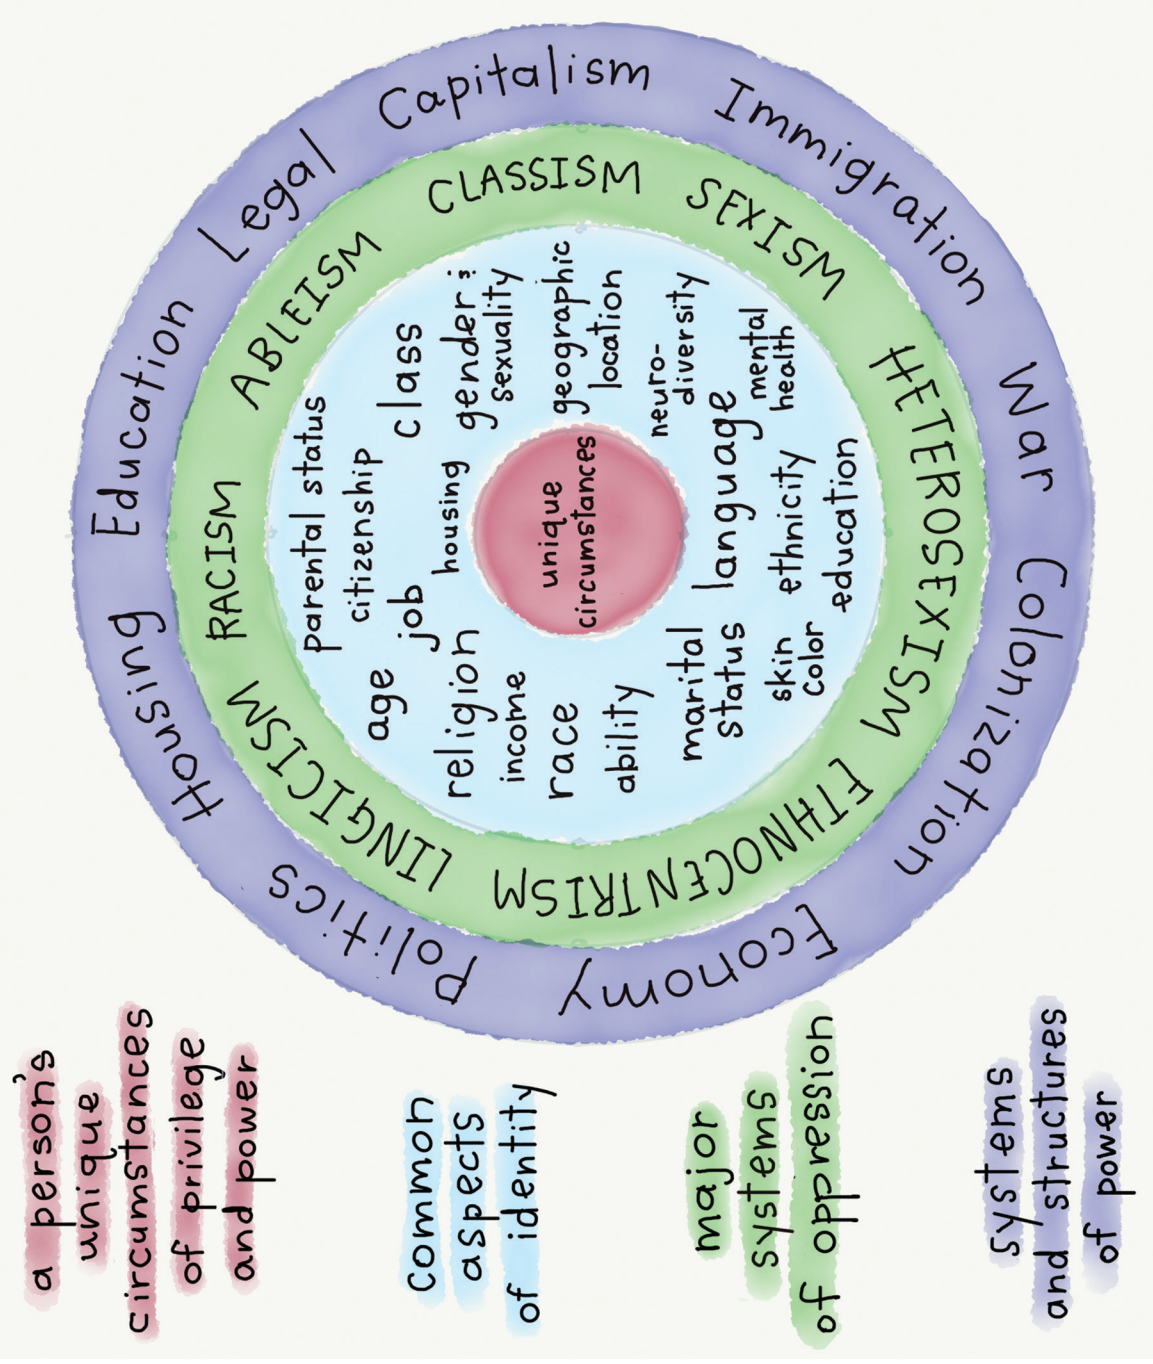 Capitalism
Immigration
War
Colonization
Economy
Politics
Housing
Education
Legal
CLASSISM
SEXISM
HETEROSEXISM
ETHNOCENTRISM
LINGICISM
RACISM
ABLEISM
parental status
citizenship
class
gender &
sexuality
geographic
location
neuro-
diversity
mental
health
housing
job
age
religion
income
race
ability
language
ethnicity
education
marital
status
skin
color
unique
circumstances
a person's
unique
circumstances
of privilege
and power
common
aspects
of identity
major
systems
of oppression
systems
and structures
of power